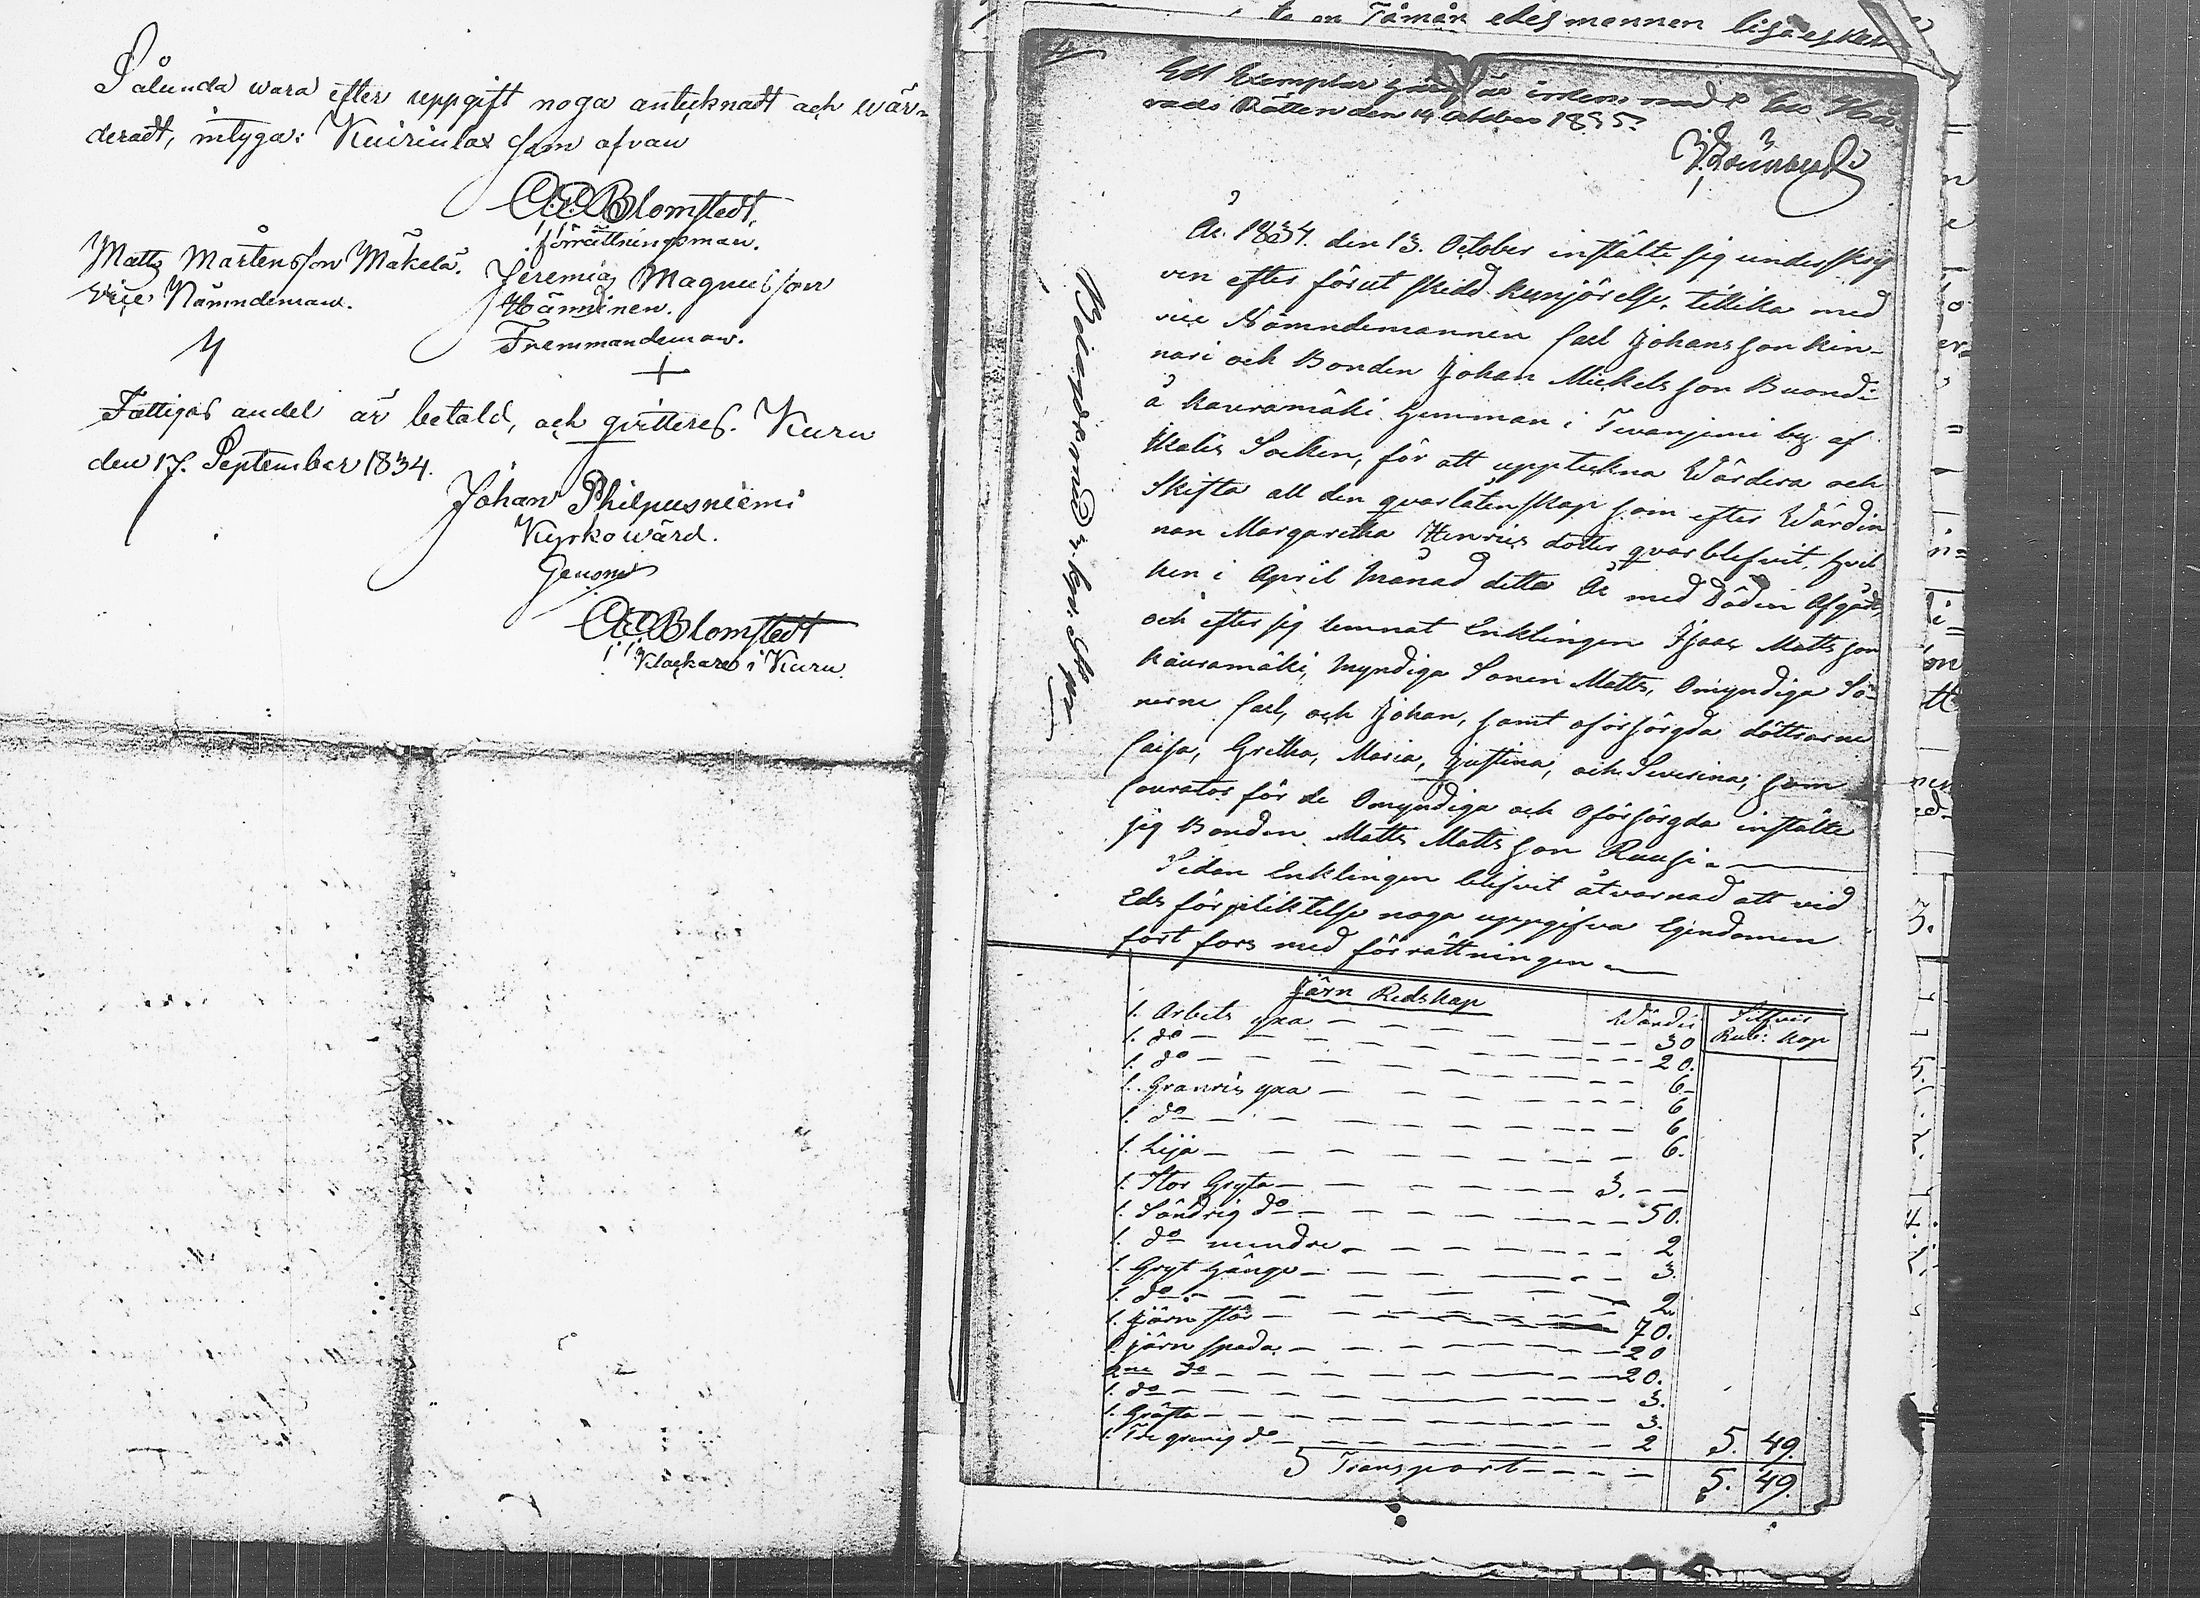 Sålunda wara efter uppgift noga antecknadt och wär-
deradt, intyga: Kuirislax som ofvan
C.E. Blomstedt.
förrättningsman.
Matts Mårtensson Mäkelä.
vice Nämndeman.
Jeremias Magnusson
Hänninen.
Fremmandeman.
Fattigas andel är betald, och qvitteres. Kuru
den 17. September 1834.
Johan Philpusniemi
Kyrkowärd.
Genom
C.E. Blomstedt
Klockare i Kuru.
te en Tåmån edesmannen
Ett Exemplar häraf är inlem̄nadt till Hä-
rads Rätten den 14 October 1835.
År 1834. den 13. October instälte sig underskrif
ven efter förut skedd kunjörelse, tillika med
vice Nämndemannen Carl Johansson Kin-
nari och Bonden Johan Mickelsson Buondi
å Kauramäki hemman i Tevanjemi by af
Ikalis Socken, för att uppteckna Wärdera och
Skifta all den qvarlåtenskap som efter Wärdin
nan Margaretha Henrics dotter qvarblefvit, hvil
ken i April Månad detta År med Döden Afgådt,
och efter sig lemnat Enklingen Isaac Mattsson
Kauramäki, Myndiga Sonen Matts, Omyndiga Sö-
nerne Carl, och Johan, samt oförsörgda döttrarne
Caisa, Gretha, Maria, Justina, och Severina; som
Courator för de Omyndiga och Oförsörgda instälte
sig Bonden Matts Mattsson Ruusi.
Sedan Enklingen blefvit åtvarnad att vid
Eds förpliktelse noga uppgifva Egendomen
fort fors med förrättningen
Järn Redskap Wärdie Silfver
Rub: Kop
1. Arbets yxa 30
1. do 20.
1. do 6
1. Granris yxa 6
1. do 6
1. Lija 6.
1. Stor Gryta 3.
1. Söndrig do 50.
1. do mindre 2
1. Gryt hänge 3.
1. do 2
1. Järn stör 70.
1. järn spada 20
2ne do 20.
1. do 3.
1. Gräfta 3.
1. Tre grenig do 2 5. 49.
Transport 5. 49.